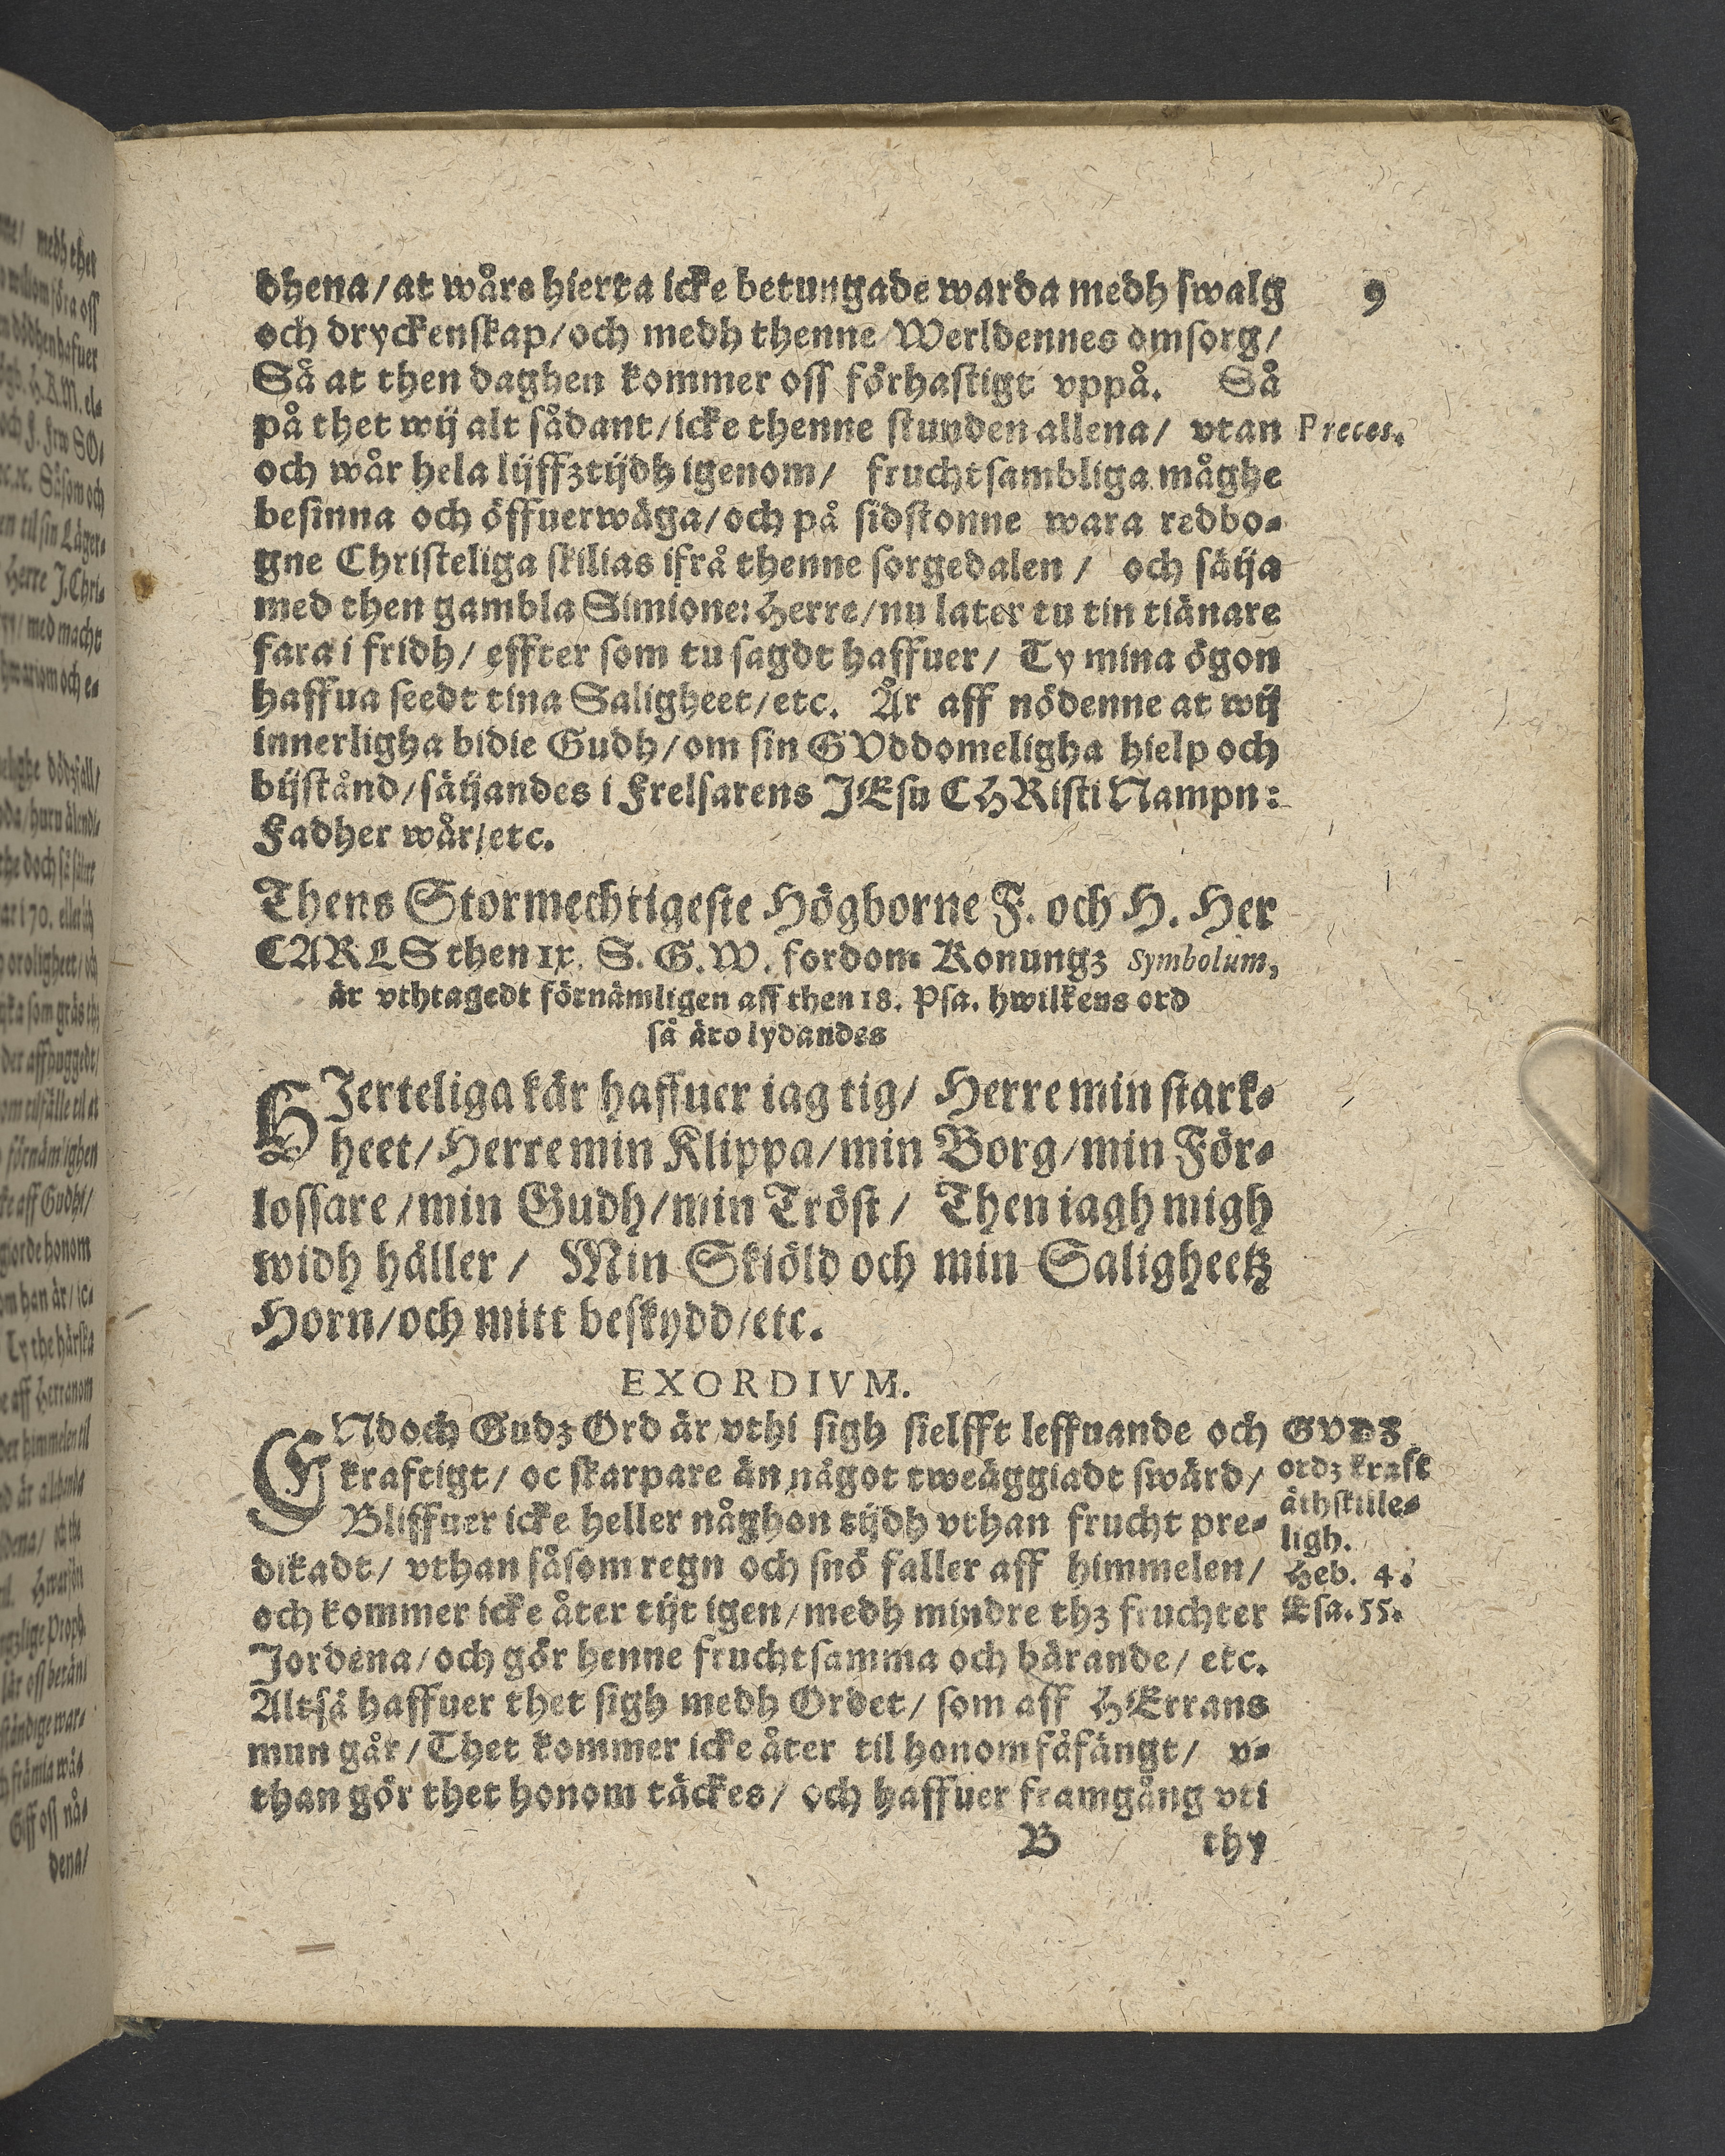 dhena/at wåre hierta icke betungade warda medh swalg
9
och dryckenskap/och medh thenne Werldennes omsorg/
Så at then daghen kommer oss förhastigt vppå. Så
på thet wij alt sådant/icke thenne stunden allena/ vtan
Preces.
och wår hela lijffztijdh igenom/ fruchtsambliga måghe
besinna och öffuerwäga/och på sidstonne wara redbo-
gne Christeliga skilias ifrå thenne sorgedalen/ och säija
med then gambla Simione: Herre/nu later tu tin tiänare
fara i fridh/ effter som tu sagdt haffuer/ Ty mina ögon
haffua seedt tina Saligheet/etc. Är aff nödenne at wij
innerligha bidie Gudh/om sin GVddomeligha hielp och
bijstånd/säijandes i Frelsarens JEsu CHRisti Nampn:
Fadher wår/etc.
Thens Stormechtigeste Högborne F. och H. Her
CARLS then ix. S. G. W. fordom Konungz Symbolum,
är vthtagedt förnämligen aff then 18. Psa. hwilkens ord
så äro lydandes
HJerteliga kär haffuer iag tig/ Herre min stark-
heet/Herre min Klippa/min Borg/min För-
lossare/min Gudh/min Tröst/ Then iagh migh
widh håller/ Min Skiöld och min Saligheetz
Horn/och mitt beskydd/etc.
EXORDIVM.
ENdoch Gudz Ord är vthi sigh sielfft leffuande och
kraftigt/ oc skarpare än något tweäggiadt swärd/
Bliffuer icke heller någhon tijdh vthan frucht pre-
dikadt/ vthan såsom regn och snö faller aff himmelen/
och kommer icke åter tijt igen/medh mindre thz fruchter
Jordena/och gör henne fruchtsamma och bärande/ etc.
Altså haffuer thet sigh medh Ordet/ som aff HErrans
mun går/Thet kommer icke åter til honom fåfängt/ v-
than gör thet honom täckes/ och haffuer framgång vti
GVDZ
ordz kraft
åthskille-
ligh.
Heb. 4.
Esa. 55.
B thy